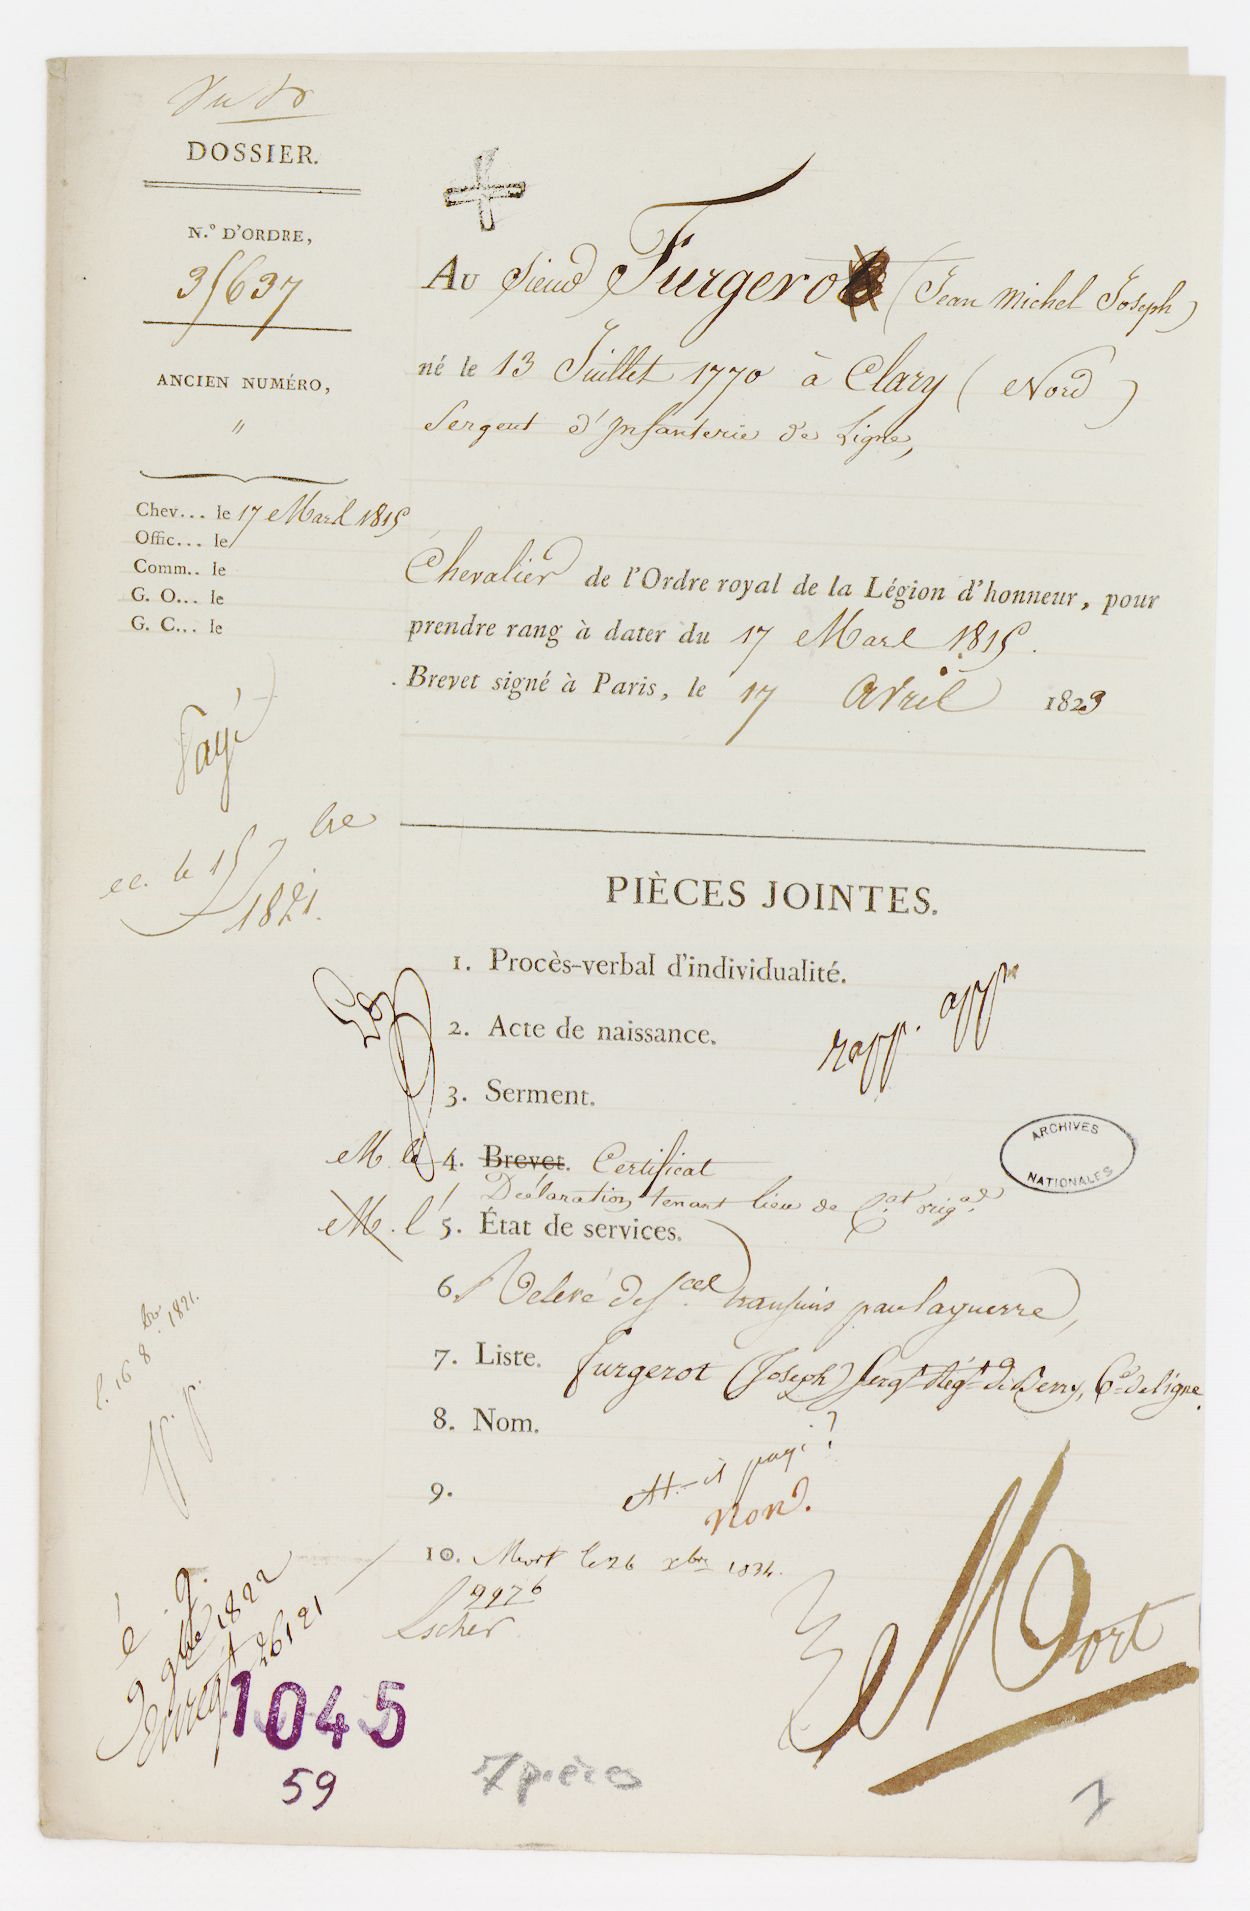 DOSSIER.
N.º D'ORDRE,
35637
ANCIEN NUMÉRO,
"
Chev... le 17 Mars 1815
Offic... le
Comm.. le
G. O... le
G. C... le
Payé
le 15 7bre
1821.
AU Sieur Furgero (Jean Michel Joseph)
né le 13 Juillet 1770 à Clary (Nord)
Sergent d'Infanterie de Ligne,
Chevalier de l'Ordre royal de la Légion d'honneur, pour
prendre rang à dater du 17 Mars 1815.
Brevet signé à Paris, le 17 Avril 1823
PIÈCES JOINTES.
1. Procès-verbal d'individualité.
2. Acte de naissance.
rapp. app
3. Serment.
M. le 4. Brevet. Certificat
Déclaration tenant lieu de C.at orig.al
M. l' 5. État de services.
6. Relevé des s.ces transmis par la guerre,
7. Liste. Furgerot (Joseph) Serg.t Rég.t de Berry, 6e de ligne.
8. Nom.
9.
At-il payé?
Non.
10. Mort le 26 xbre 1834.
9976
Lscher
ARCHIVES
NATIONALES
l. 16 8bre 1821.
p. p.
é. g.
9 9bre 1822
Enregt 26121
1045
59
7 pièces
Mort
7